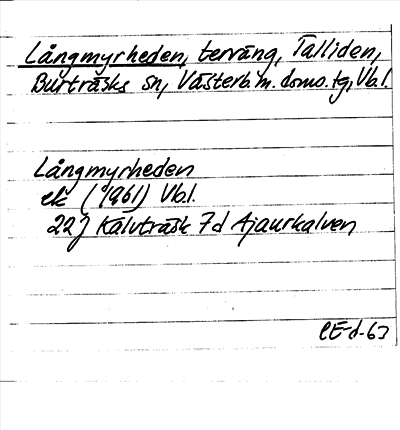 Långmyrheden, terräng, Talliden,
Burträsks sn, Västerb:m. doms. tg, Vb.l.
Långmyrheden
ek (1961) Vb.l.
22J Kalvträsk 7d Ajaurkalven
CE-d-63